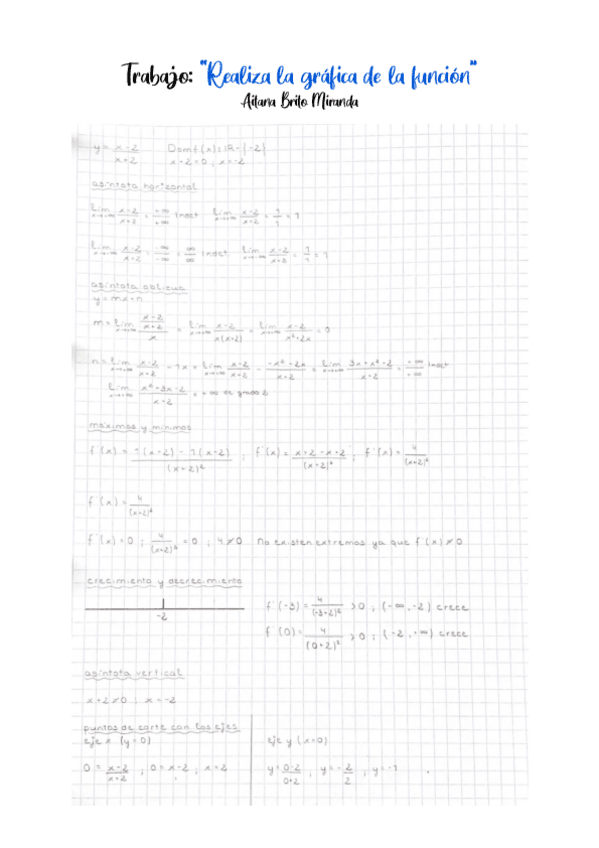 Trabajo: "Realiza la gráfica de la función"
Aitana Brito Miranda
y = x-2/x+2 Dom f(x): IR-{-2}
x+2=0 ; x=-2
asíntota horizontal
lim x→+∞ x-2/x+2 = +∞/+∞ Indet lim x→+∞ x-2/x+2 = 1/1 = 1
lim x→-∞ x-2/x+2 = -∞/-∞ = ∞/∞ Indet lim x→-∞ x-2/x+2 = 1/1 = 1
asíntota oblicua
y = mx+n
m = lim x→+∞ (x-2/x+2)/x = lim x→+∞ x-2/x(x+2) = lim x→+∞ x-2/x²+2x = 0
n = lim x→+∞ x-2/x+2 - 1x = lim x→+∞ x-2/x+2 - -x²+2x/x+2 = lim x→+∞ 3x+x²-2/x+2 = +∞/+∞ Indet
lim x→+∞ x²+3x-2/x+2 = +∞ de grado 2
máximos y mínimos
f'(x) = 1(x+2) - 1(x-2)/(x+2)² ; f'(x) = x+2-x+2/(x+2)² ; f'(x) = 4/(x+2)²
f'(x) = 4/(x+2)²
f'(x) = 0 ; 4/(x+2)² = 0 ; 4≠0 No existen extremos ya que f'(x) ≠ 0
crecimiento y decrecimiento
-2
f'(-3) = 4/(-3+2)² > 0 ; (-∞,-2) crece
f'(0) = 4/(0+2)² > 0 ; (-2,+∞) crece
asíntota vertical
x+2≠0 ; x=-2
puntos de corte con los ejes
eje x (y=0)
0 = x-2/x+2 ; 0 = x-2 ; x=2
eje y (x=0)
y = 0-2/0+2 ; y = -2/2 ; y = -1